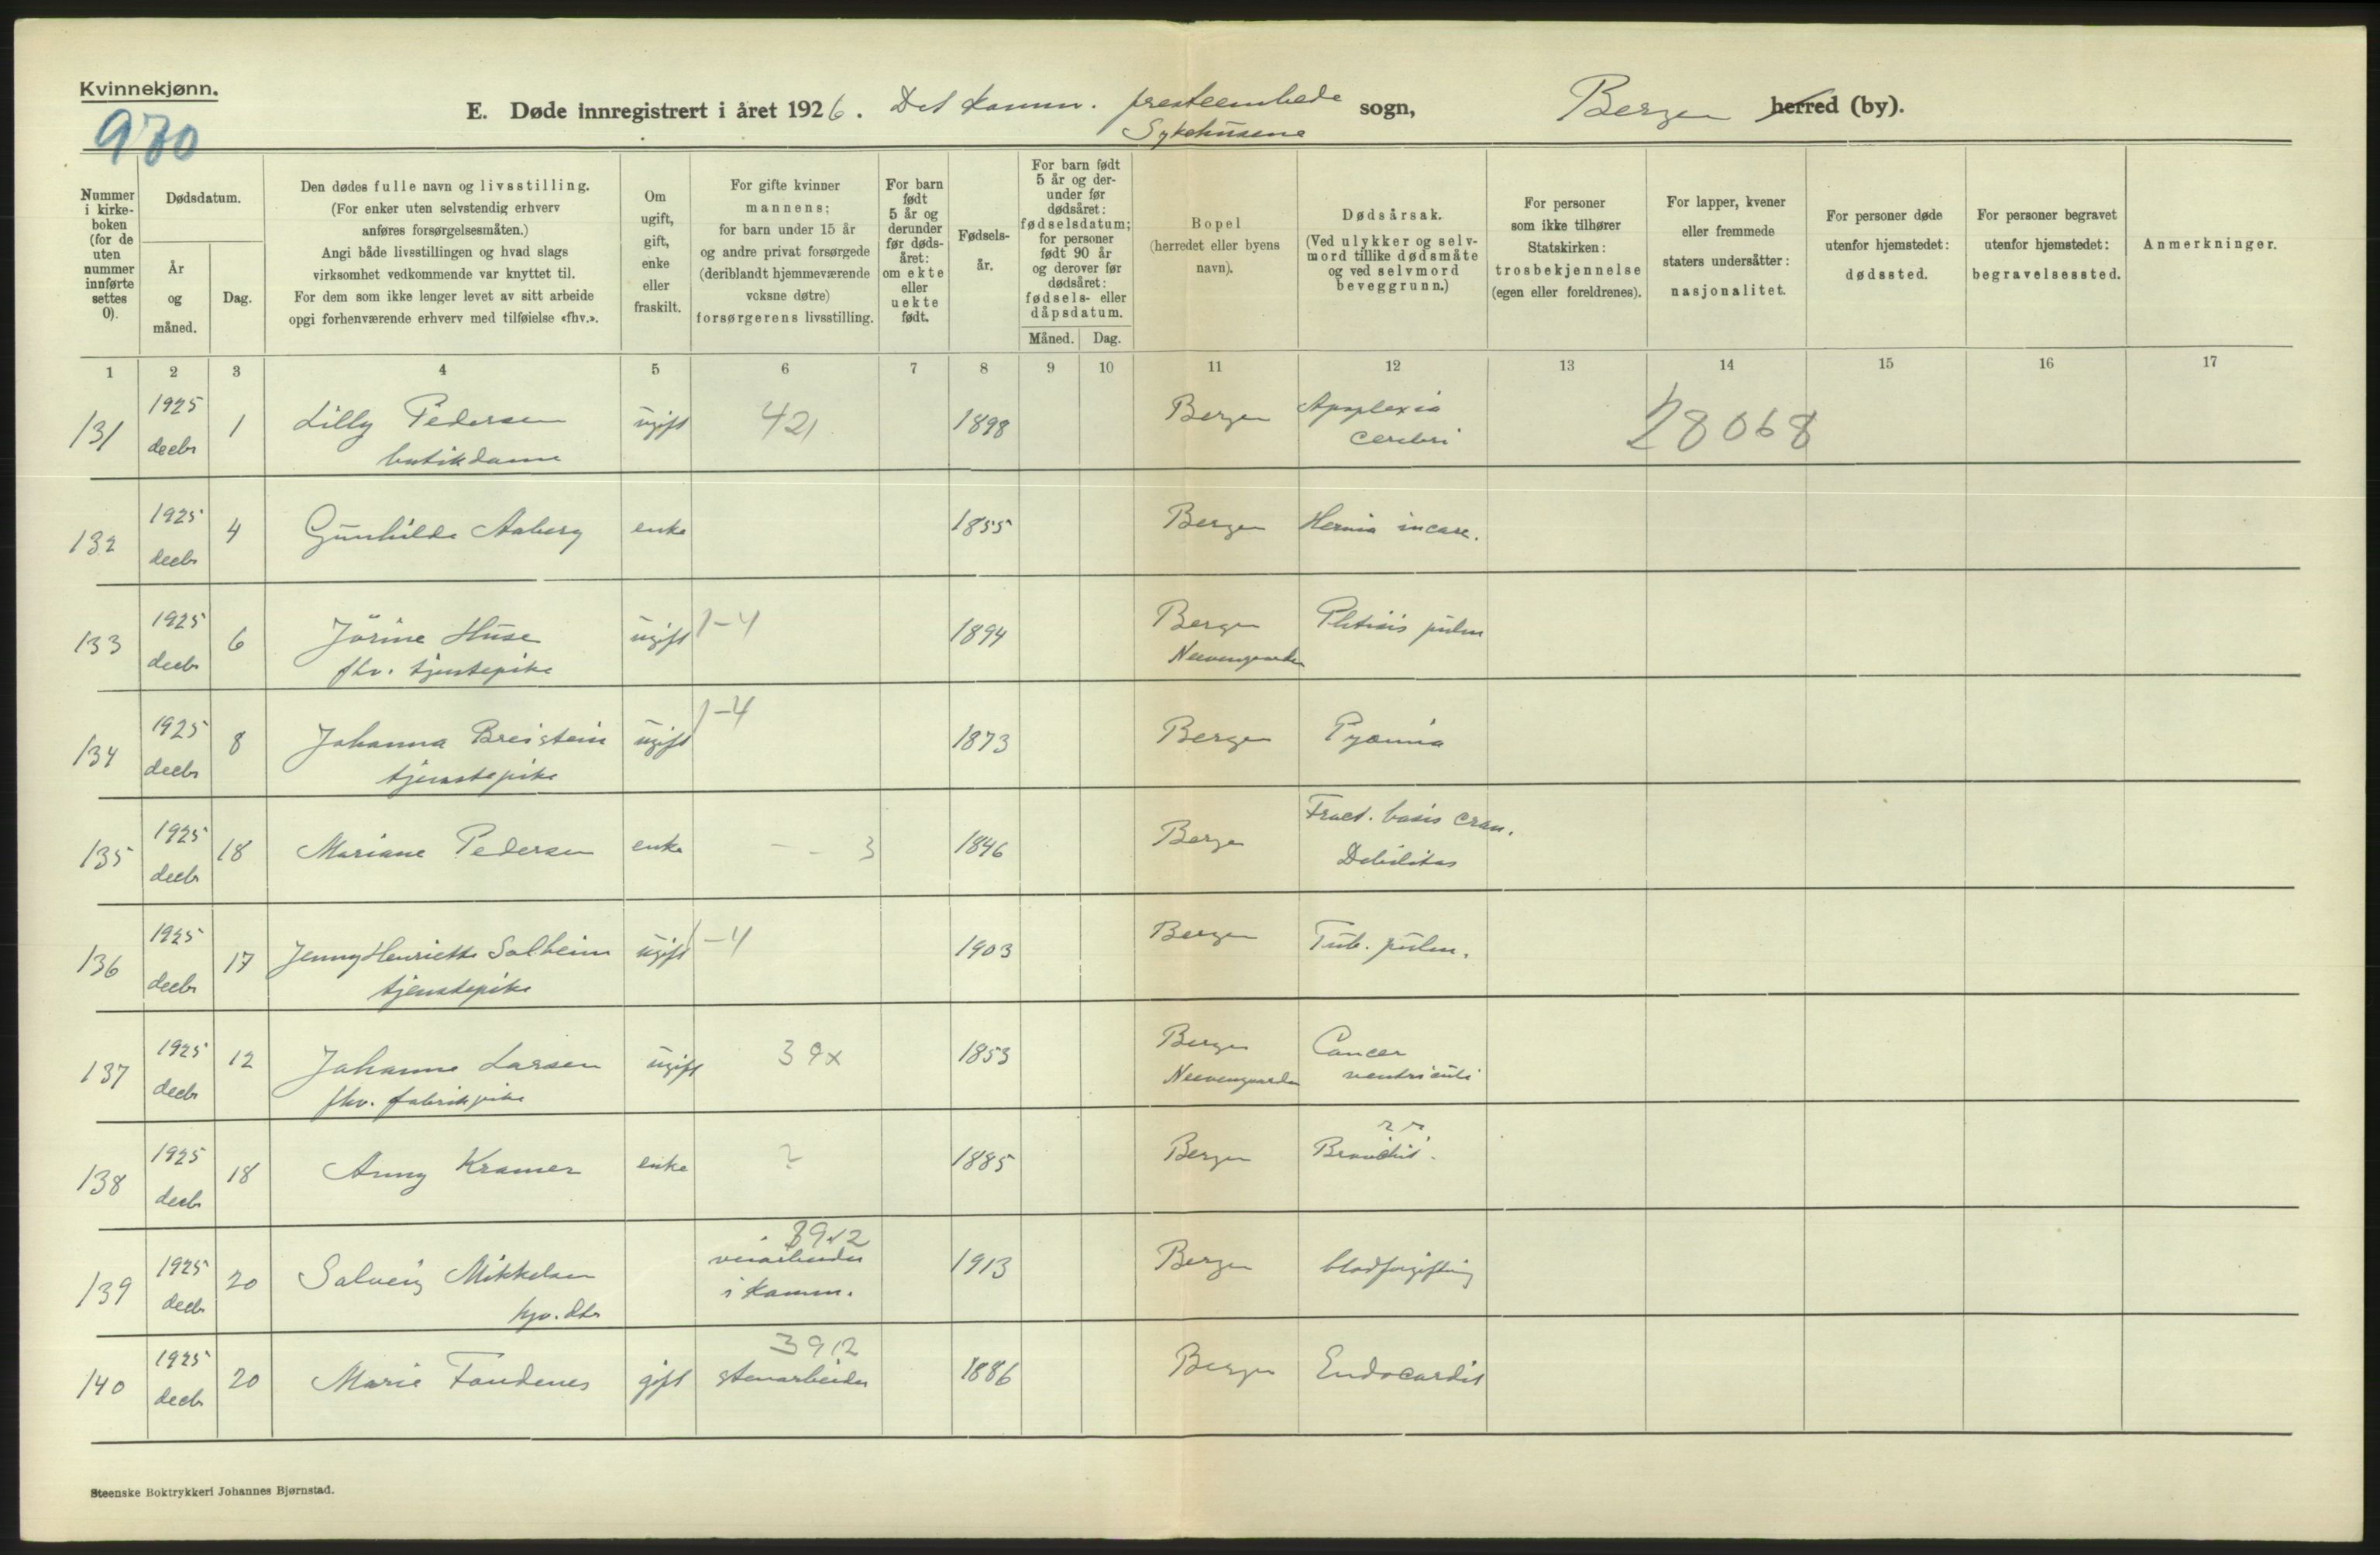 Kvinnekjønn.
970
E. Døde innregistrert i året 1926. Det komm. presteembede sogn, Bergen herred (by).
Sykehusene
Nummer i kirke-boken (for de uten nummer innførte settes 0).
Dødsdatum.
År og måned.
Dag.
Den dødes fulle navn og livsstilling.
(For enker uten selvstendig erhverv
anføres forsørgelsesmåten.)
Angi både livsstillingen og hvad slags
virksomhet vedkommende var knyttet til.
For dem som ikke lenger levet av sitt arbeide
opgi forhenværende erhverv med tilføielse «fhv.».
Om
ugift,
gift,
enke
eller
fraskilt.
For gifte kvinner
mannens;
for barn under 15 år
og andre privat forsørgede
(deriblandt hjemmeværende
voksne døtre)
forsørgerens livsstilling.
For barn
født
5 år og
derunder
før døds-
året:
om ekte
eller
uekte
født.
Fødsels-
år.
For barn født
5 år og der-
under før
dødsåret:
fødselsdatum;
for personer
født 90 år
og derover før
dødsåret:
fødsels- eller
dåpsdatum.
Måned. Dag.
Bopel
(herredet eller byens
navn).
Dødsårsak.
(Ved ulykker og selv-
mord tillike dødsmåte
og ved selvmord
beveggrunn.)
For personer
som ikke tilhører
Statskirken:
trosbekjennelse
(egen eller foreldrenes).
For lapper, kvener
eller fremmede
staters undersåtter:
nasjonalitet.
For personer døde
utenfor hjemstedet:
dødssted.
For personer begravet
utenfor hjemstedet:
begravelsessted.
Anmerkninger.
1 2 3 4 5 6 7 8 9 10 11 12 13 14 15 16 17
131 1925 decbr 1 Lilly Pedersen ugift 421 1898 Bergen Apoplexia cerebri 28068
butikdame
132 1925 decbr 4 Gunhilda Aaberg enke 1855 Bergen Hernia incarc.
133 1925 decbr 6 Jörine Huse ugift 1-4 1894 Bergen Phtisis pulm
fhv. tjenstepike Neevengaarden
134 1925 decbr 8 Johanna Breistein ugift 1-4 1873 Bergen Pyæmia
tjenstepike
135 1925 decbr 18 Mariane Pedersen enke - - 3 1846 Bergen Fract. basis cran.
Debilitas
136 1925 decbr 17 Jenny Henriette Solheim ugift 1-4 1903 Bergen Tub. pulm.
tjenstepike
137 1925 decbr 12 Johanne Larsen ugift 39x 1853 Bergen Cancer
fhv. fabrikpike Neevengaarden ventriculi
138 1925 decbr 18 Anny Kramer enke ? 1885 Bergen
139 1925 decbr 20 Solveig Mikkelsen 3912 veiarbeider i komm. 1913 Bergen blodforgiftning
140 1925 decbr 20 Marie Fondenes gift 3912 stenarbeider 1886 Bergen Endocardit
Steenske Boktrykkeri Johannes Bjørnstad.